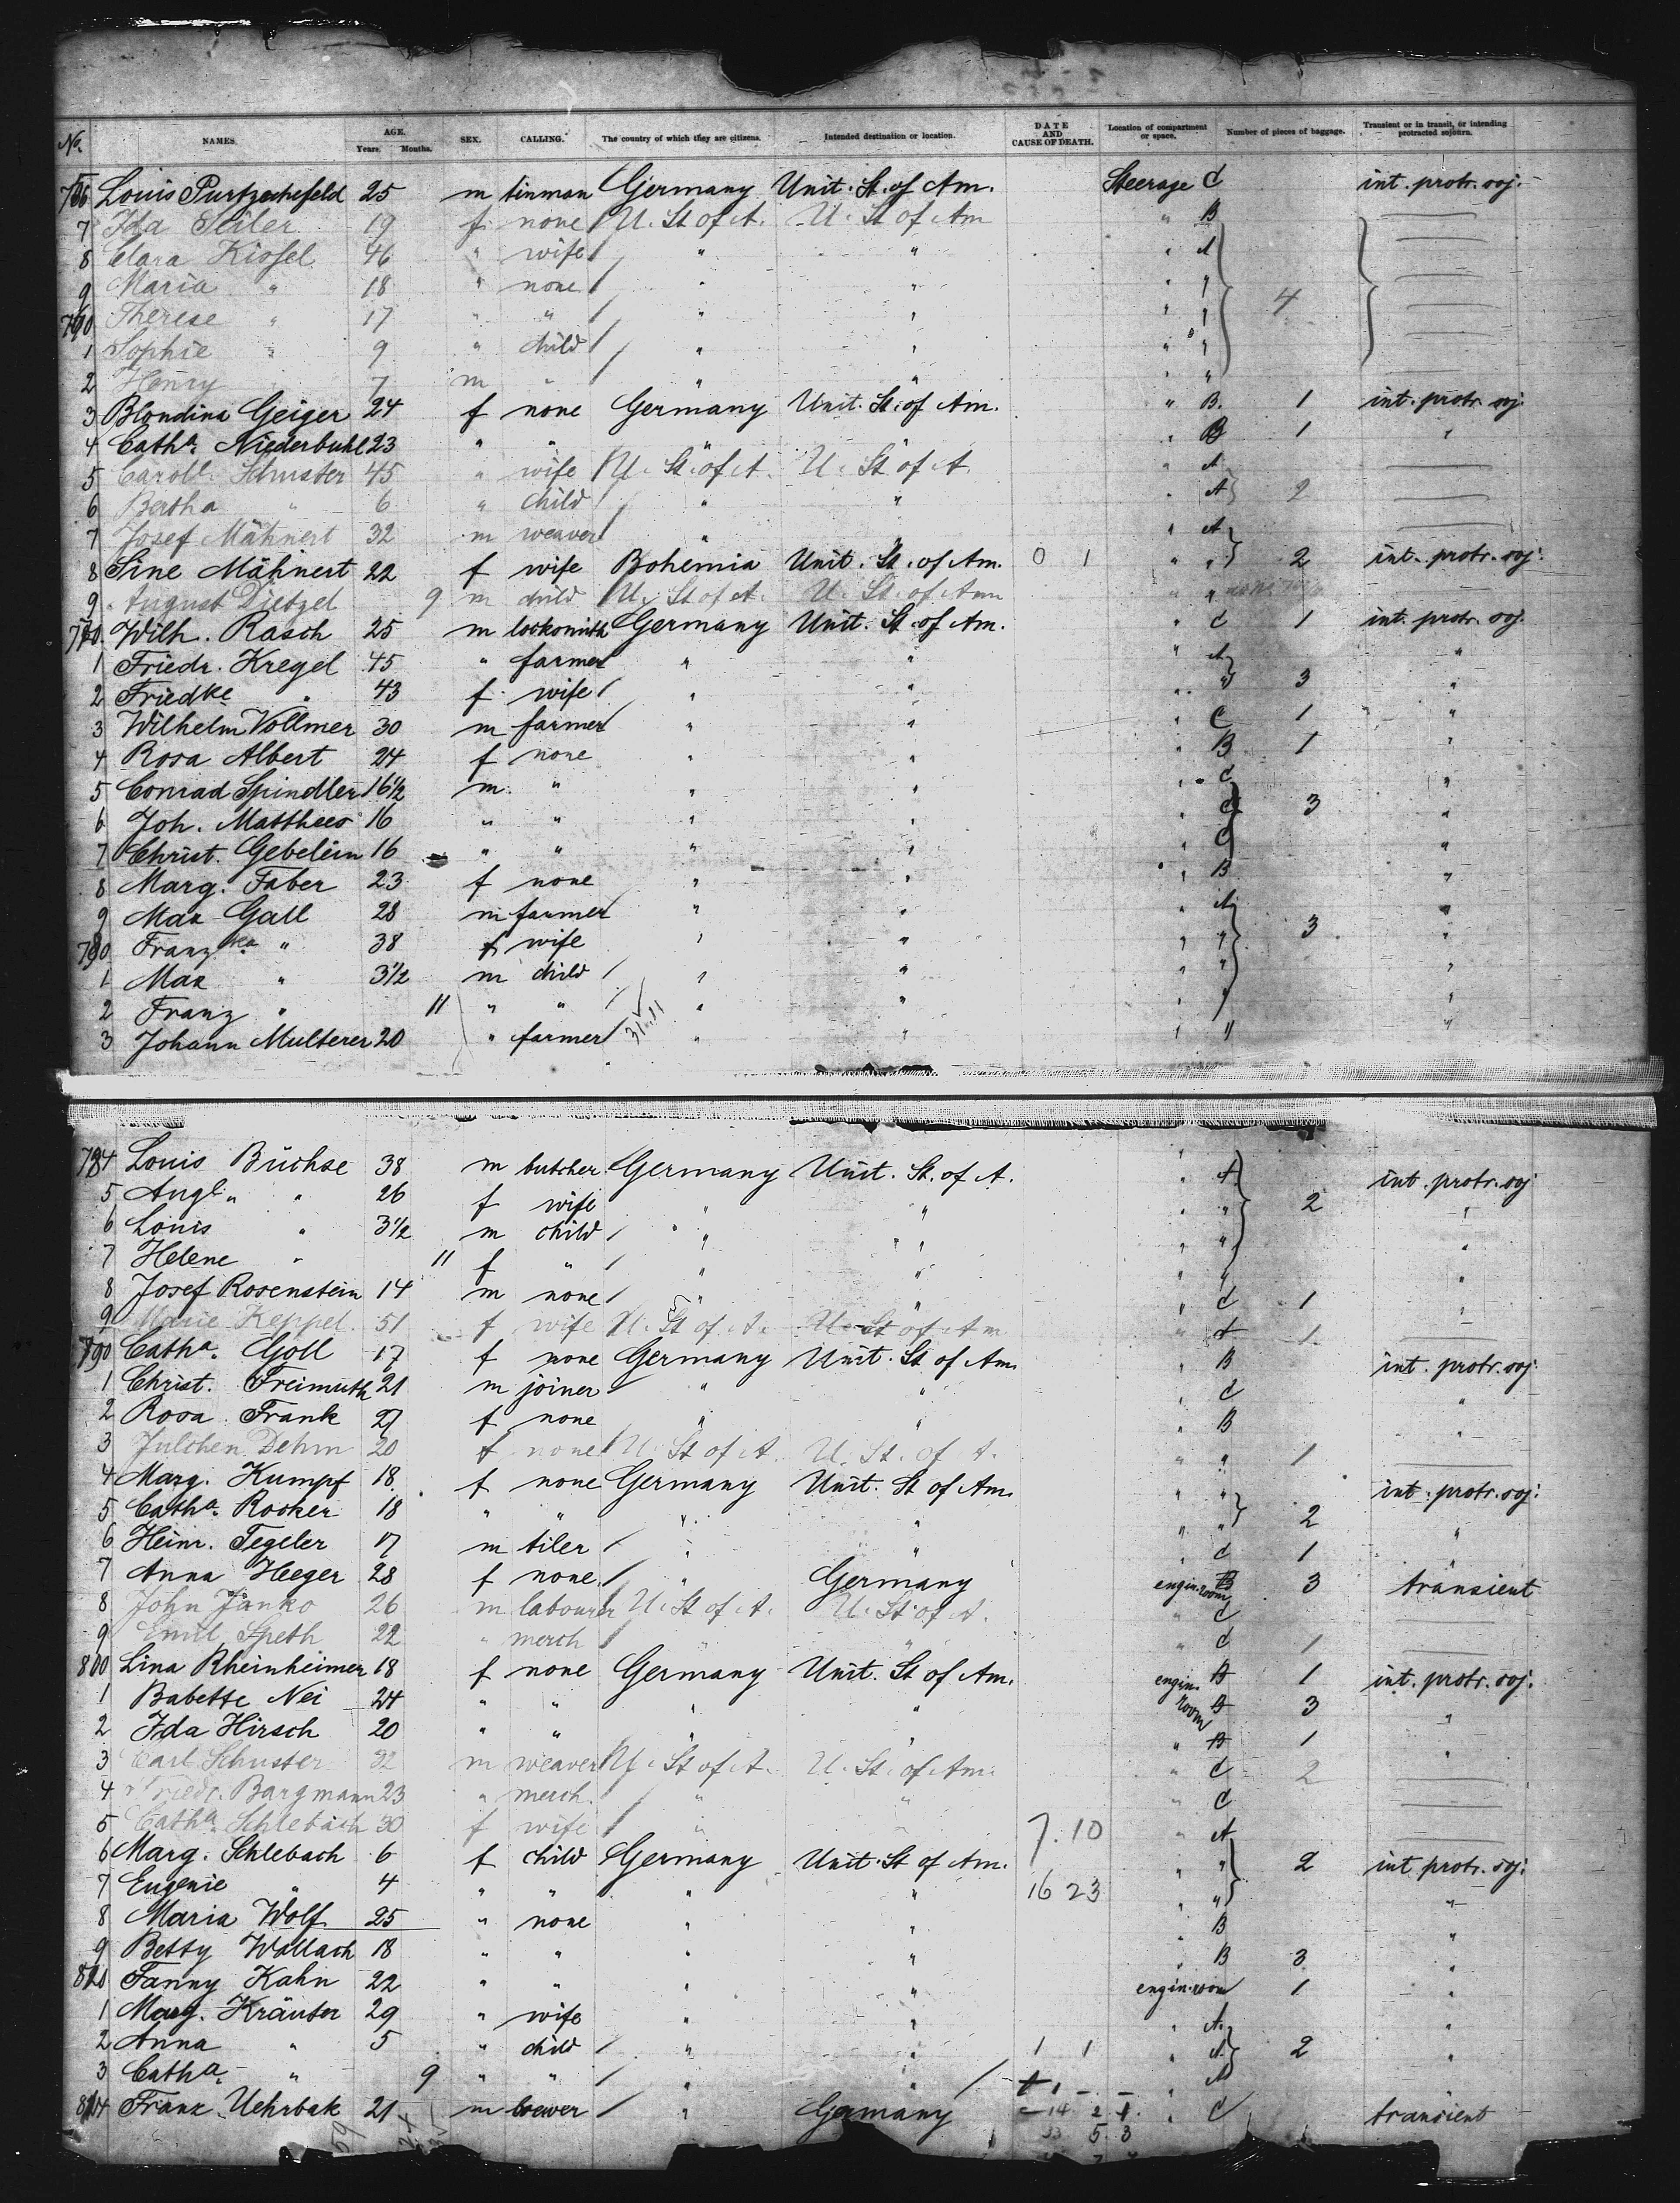 No. NAMES. AGE. Years. Months. SEX. CALLING. The country of which they are citizens. Intended destination or location. DATE AND CAUSE OF DEATH. Location of compartment or space. Number of pieces of baggage. Transient or in transit, or intending protracted sojourn.
Louis 25 m tinman Germany Unit. St. of Am. Steerage C int. protr. soj.
7 Ida Seiler 19 f. none U. St of A. U. St of Am " B
8 Clara Kissel 46 " wife " " " A
9 Maria " 18 " none " " " "
Therese " 17 " " " " " " 4
1 Sophie " 9 " child " " " "
2 Henry " 7 m " " " " "
3 Blondina Geiger 24 f none Germany Unit. St. of Am. " B. 1 int. protr. soj.
4 Catha. Niederbuhl 23 " " " " " B 1 "
5 Carolt. Schuster 45 " wife U. St. of A. U. St of A. " A
6 Bertha " 6 " child " " " A 2
7 Josef Mähnert 32 m weaver " " " A
8 Sine Mähnert 22 f wife Bohemia Unit. St. of Am. 0 1 " " 2 int. protr. soj.
9 August Dietzel 9 m child U. St of A. U. St. of Am " "
Wilh. Rasch 25 m locksmith Germany Unit. St. of Am. " C 1 int. protr. soj.
1 Friedr. Kregel 45 " farmer " " " A "
2 Friedke " 43 f. wife " " " " 3 "
3 Wilhelm Vollmer 30 m farmer " " " C 1 "
4 Rosa Albert 24 f none " " " B 1 "
5 Conrad Spindler 16 1/2 m. " " " " C "
6 Joh. Matthees 16 " " " " " C 3 "
7 Christ. Gebelein 16 " " " " " C "
8 Marg. Faber 23 f none " " " B "
9 Max Gall 28 m farmer " " " A "
Franzka " 38 f wife " " " " 3 "
1 Max " 3 1/2 m child " " " " "
2 Franz " 11 " " " " " " "
3 Johann Multerer 20 " farmer " " " " "
784 Louis Büchse 38 m butcher Germany Unit. St. of A. " A int. protr. soj
5 Augl. " 26 f wife " " " " 2 "
6 Louis " 3 1/2 m child " " " " "
7 Helene " 11 f " " " " " "
8 Josef Rosenstein 14 m none " " " C 1 "
9 Marie Keppel. 51 f wife U. St of A. U. St of Am " A 1
790 Catha. Goll 17 f none Germany Unit. St of Am. " B int. protr. soj.
1 Christ. Freimuth 21 m joiner " " " C "
2 Rosa Frank 27 f none " " " B "
3 Julchen Dehm 20 f none U. St of A. U. St. of A. " " 1
4 Marg. Kumpf 18 f none Germany Unit. St of Am. " " int. protr. soj.
5 Catha. Rooker 18 " " " " " " 2 "
6 Heinr. Tegeler 17 m tiler " " " C 1 "
7 Anna Heeger 28 f none " Germany engin. room B 3 transient
8 John Janko 26 m labourer U. St of A. U. St of A. " C
9 Emil Speth 22 " merch " " " C 1
800 Lina Rheinheimer 18 f none Germany Unit. St of Am. engin. B 1 int. protr. soj.
1 Babette Nei 24 " " " " room B 3 "
2 Ida Hirsch 20 " " " " " B 1 "
3 Carl Schuster 32 m weaver U. St of A. U. St. of Am. " C 2
4 Friedr. Bargmann 23 " merch. " " " C
5 Catha. Schlebach 30 f wife " " 7. 10 " A
6 Marg. Schlebach 6 f child Germany Unit. St of Am. " " 2 int protr. soj.
7 Eugenie " 4 " " " " 16 23 " " "
8 Maria Wolf 25 " none " " " B "
9 Betty Wallach 18 " " " " " B 3 "
810 Fanny Kahn 22 " " " " engin. room 1 "
1 Marg. Kräuter 29 " wife " " " A. "
2 Anna " 5 " child " " 1 1 " A. 2 "
3 Catha. " 9 " " " " " A
814 Franz Uehrbak 21 m brewer " Germany " C transient